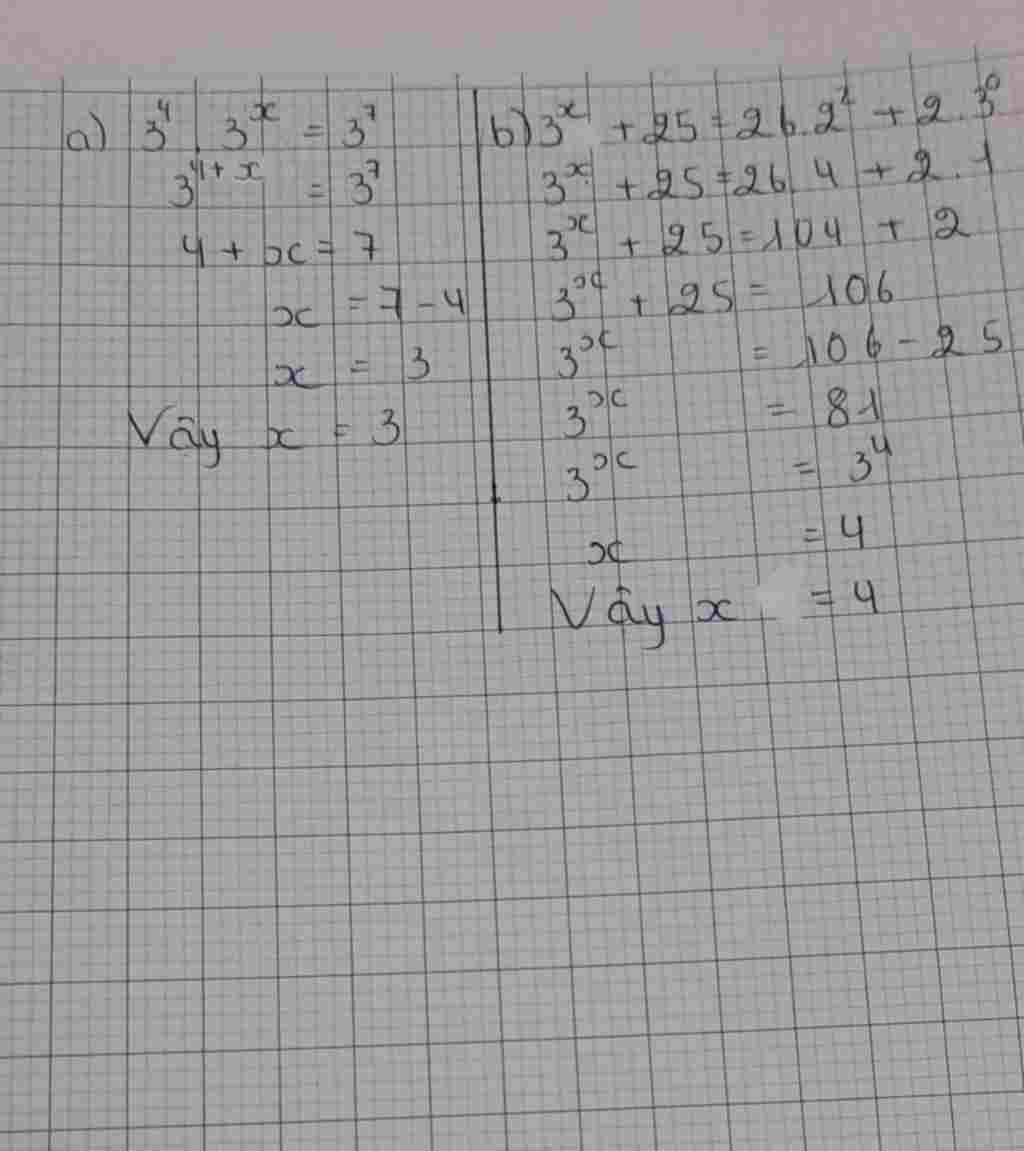 a) 3⁴ . 3ˣ = 3⁷
3⁴⁺ˣ = 3⁷
4 + x = 7
x = 7 - 4
x = 3
Vậy x = 3
b) 3ˣ + 25 = 26.2² + 2.3⁰
3ˣ + 25 = 26.4 + 2.1
3ˣ + 25 = 104 + 2
3ˣ + 25 = 106
3ˣ = 106 - 25
3ˣ = 81
3ˣ = 3⁴
x = 4
Vậy x = 4